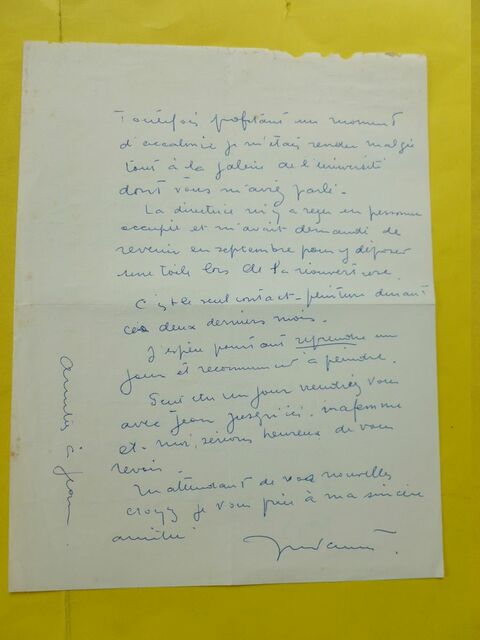 Toutefois profitant un moment
d'accalmie je m'étais rendu malgré
tout à la galerie de l'université
dont vous m'aviez parlé.
La directrice m'y a reçu en personne
et m'avait demandé de
revenir en septembre pour y déposer
une toile lors de la réouverture.
C'est le seul contact-peinture durant
ces deux derniers mois.
J'espère pourtant reprendre un
jour et recommencer à peindre.
un jour viendrez vous
avec Jean jusqu'ici. ma femme
et moi, serions heureux de vous
revoir.
En attendant de vos nouvelles
croyez je vous prie à ma sincère
amitié
amitiés à Jean.